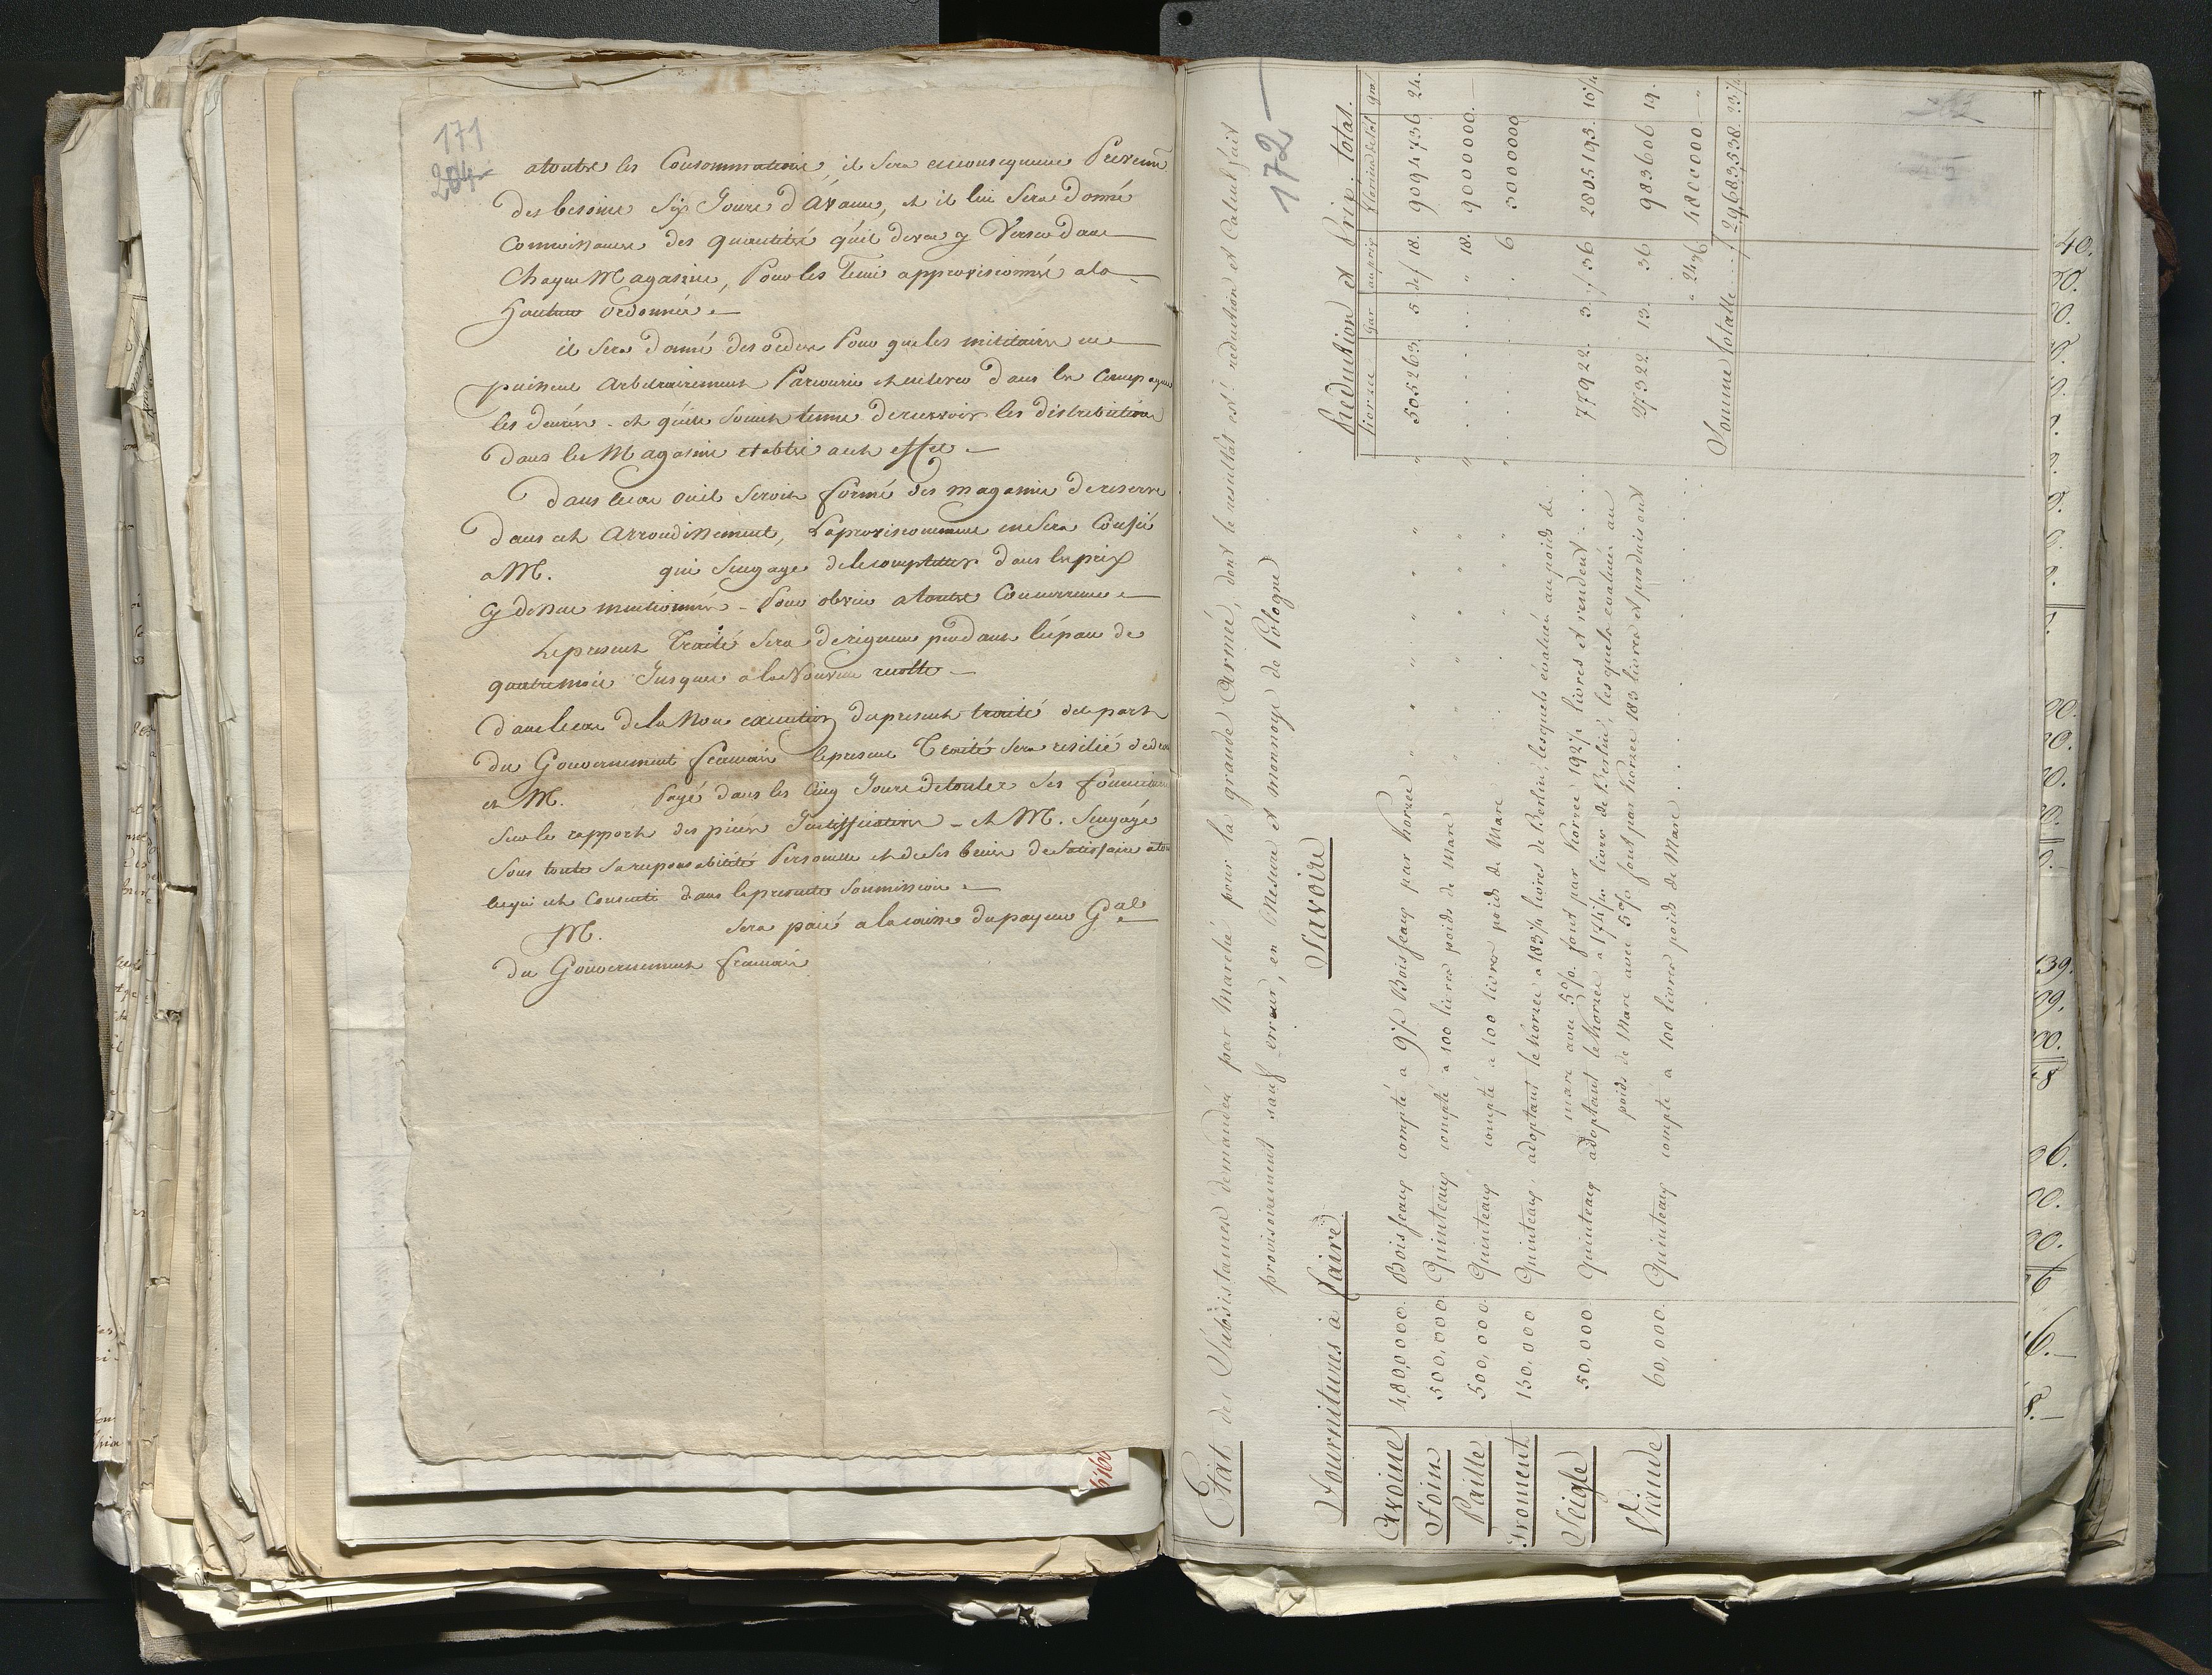 171
204
atoutes les Consommations, il Sera enconsequence Prevenu
des besoins Six Jours d'avance, et il lui Sera donné
Connoissance des quantités qu'il devra y Verser dans
Chaque Magasins, Pour les Tenir approvisionnés ala
hauteur ordonnée.
il Sera donné des ordres Pour que les militaires ne
puissent Arbitrairement Parcourir et enlever dans les Campagnes
les denrées - et qu'ils soient tenus derecevoir les distributions
dans les Magasins etablis acet effet.
dans lecas ouil Seroit formé des magasins dereserve
dans cet Arrondissement, L'aprovisionnement en Sera Confié
a M. qui Sengage delescompletter dans les prix
Cy dessus mentionnés - Pour obvier atoute Concurrence.
Lepresent Traité Sera derigueur pendant lespace de
quatre mois Jusques alaNouvelle recolte -
dans lecas dela Non execution dupresent traité dela part
du Gouvernement francais lepresent Traité Sera resilié dedroit
et M. Payé dans les Cinq Jours detoutes Ses fournitures
Sur le rapport des pieces Justifficatives - et M. Sengage
Sous toute Saresponsabilité Personnelle et deSes biens deSatisfaire atout
cequi est Consenti dans lapresente Soumission.
M. Sera paié alacaisse dupayeur Gal
du Gouvernement francais
172
Etat des Subsistances demandées par Marché pour la grande Armée, dont le resultat est reduction et Calcul fait
provisoirement sauf erreur, en Mesure et Monnoye de Pologne
Savoire
Fournitures à faire. Reduction et Prix total.
Korzec Gar au prix Florins de Pol gros
Avoine 4,800,000. Boisseaux compté a 9½ Boisseaux par Korzec 505263. 5 de f 18. 9094736 24.
Foin 500,000 Quinteaux compté a 100 livres poids de Marc " 18. 9000000. —
Paille 500,000 Quinteaux compté a 100 livres poids de Marc 6 3000000
Froment 150,000 Quinteaux, adoptant le Korzec a 183¼ livres de Berlin, lesquels évalués au poids de
marc avec 5% font par Korzec 192½ livres et rendent 77922. 3. f 36 2805193. 10¼
Seigle 50,000 Quinteaux adoptant le Korzec a 174¼ livres de Berlin, les quels evalués au
poids de Marc avec 5% font par Korzec 183 livres et produisent 27322 13. 36 983606 19.
Viande 60,000. Quinteaux compté a 100 livres poids de Marc
Somme totale f 29,683,538. 23¼